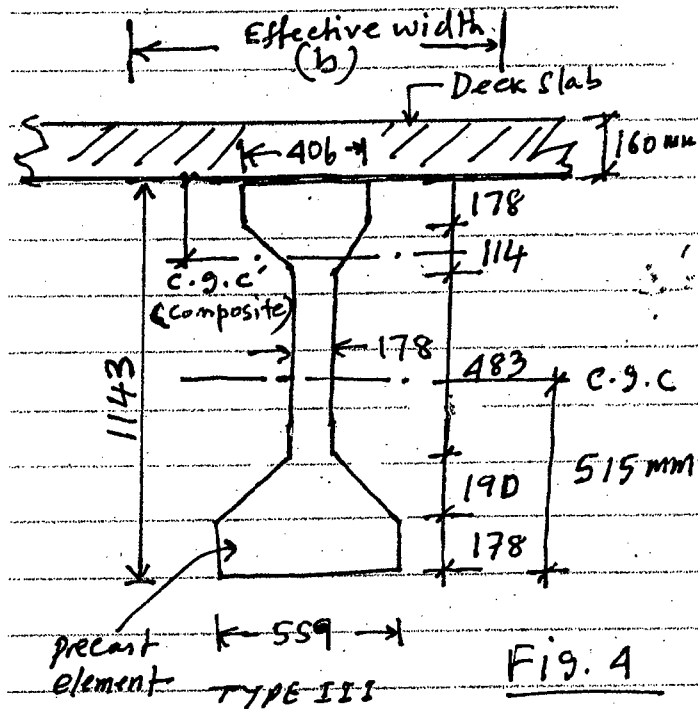 Effective width
(b)
Deck slab
406
160 mm
178
114
c.g.c'
(composite)
178
1143
483
c.g.c
515 mm
190
178
559
precast
element
TYPE III
Fig. 4